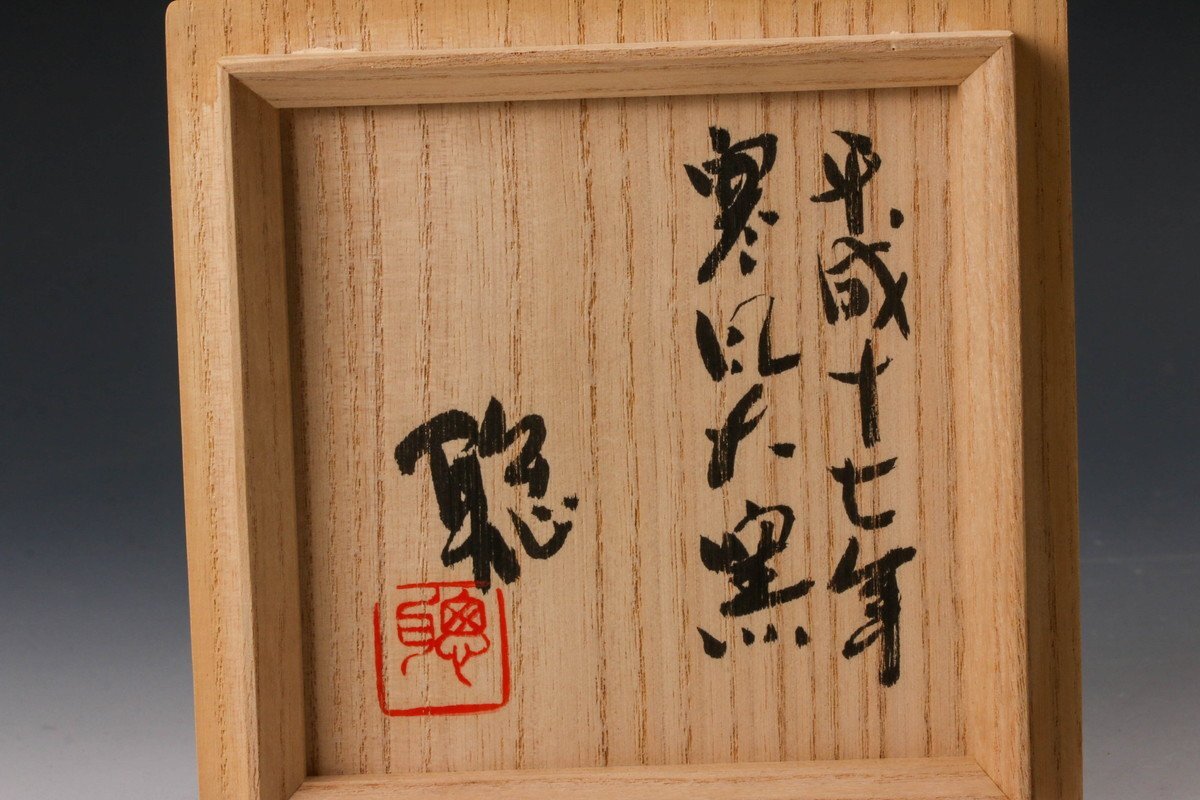 平成十七年
寒風大窯
聡
聰